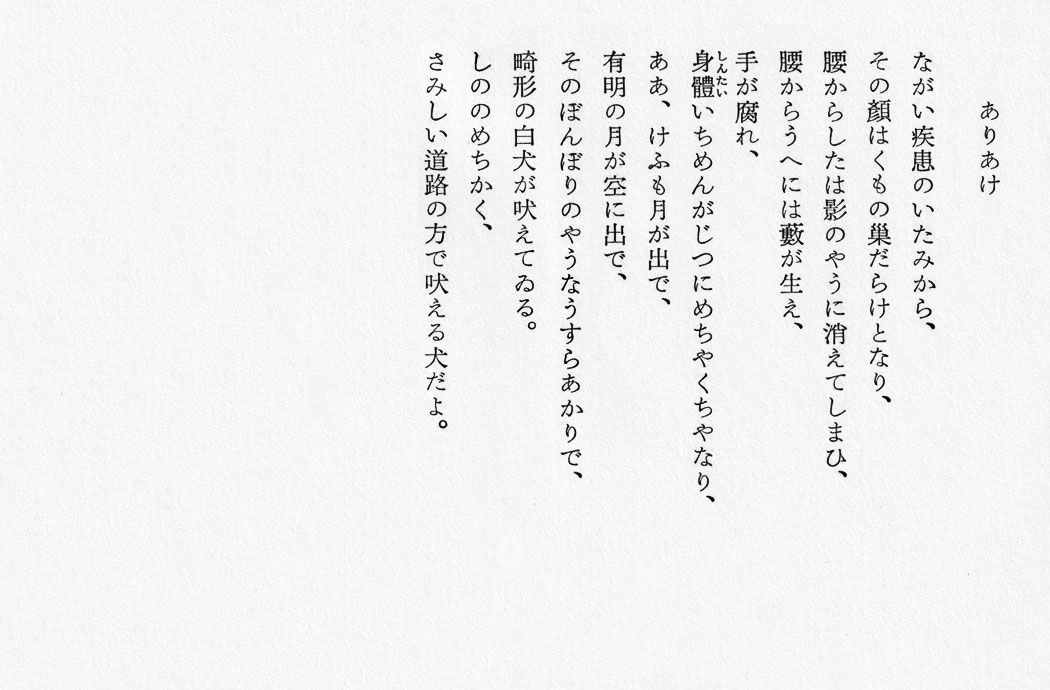 ありあけ
ながい疾患のいたみから、
その顏はくもの巣だらけとなり、
腰からしたは影のやうに消えてしまひ、
腰からうへには藪が生え、
手が腐れ、
身體いちめんがじつにめちやくちやなり、
しんたい
ああ、けふも月が出で、
有明の月が空に出で、
そのぼんぼりのやうなうすらあかりで、
畸形の白犬が吠えてゐる。
しののめちかく、
さみしい道路の方で吠える犬だよ。